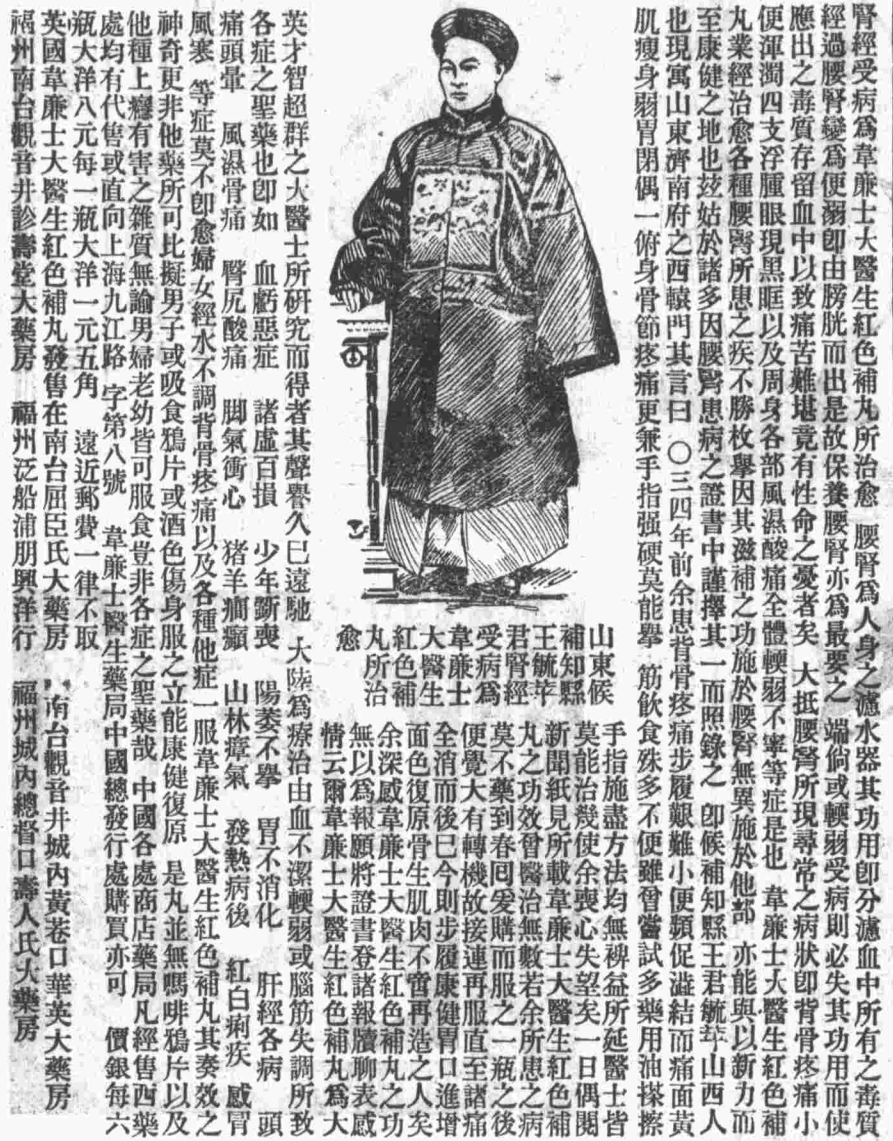 腎經受病爲韋廉士大醫生紅色補丸所治愈 腰腎爲人身之濾水器其功用卽分濾血中所有之毒質
經過腰腎變爲便溺卽由膀胱而出是故保養腰腎亦爲最要之 端倘或輭弱受病則必失其功用而使
應出之毒質存留血中以致痛苦難堪竟有性命之憂者矣 大抵腰腎所現尋常之病狀卽背骨疼痛小
便渾濁四支浮腫眼現黑眶以及周身各部風濕酸痛全體輭弱不寧等症是也 韋廉士大醫生紅色補
丸業經治愈各種腰腎所患之疾不勝枚舉因其滋補之功施於腰腎無異施於他部 亦能與以新力而
至康健之地也玆姑於諸多因腰腎患病之證書中謹擇其一而照錄之 卽候補知縣王君毓苹山西人
也現寓山東濟南府之西轅門其言曰 〇三四年前余患背骨疼痛步履艱難小便頻促溢結而痛面黃
肌瘦身弱胃閉偶一俯身骨節疼痛更兼手指强硬莫能舉 筋飲食殊多不便雖曾嘗試多藥用油搽擦
山東候
補知縣
王毓苹
君腎經
受病爲
韋廉士
大醫生
紅色補
丸所治
愈
手指施盡方法均無裨益所延醫士皆
莫能治幾使余喪心失望矣一日偶閱
新聞紙見所載韋廉士大醫生紅色補
丸之功效曾醫治無數若余所患之病
莫不藥到春回爰購而服之一瓶之後
便覺大有轉機故接連再服直至諸痛
全消而後已今則步履康健胃口進增
面色復原骨生肌肉不啻再造之人矣
余深感韋廉士大醫生紅色補丸之功
無以爲報願將證書登諸報牘聊表感
情云爾韋廉士大醫生紅色補丸爲大
英才智超群之大醫士所硏究而得者其聲譽久已遠馳 大陸爲療治由血不潔輭弱或腦筋失調所致
各症之聖藥也卽如 血虧惡症 諸虛百損 少年斲喪 陽萎不擧 胃不消化 肝經各病 頭
痛頭暈 風濕骨痛 腎尻酸痛 脚氣衝心 猪羊癎癲 山林瘴氣 發熱病後 紅白痢疾 感冒
風寒 等症莫不卽愈婦女經水不調背骨疼痛以及各種他症一服韋廉士大醫生紅色補丸其奏效之
神奇更非他藥所可比擬男子或吸食鴉片或酒色傷身服之立能康健復原 是丸並無嗎啡鴉片以及
他種上癮有害之雜質無論男婦老幼皆可服食豈非各症之聖藥哉 中國各處商店藥局凡經售西藥
處均有代售或直向上海九江路 字第八號 韋廉士醫生藥局中國總發行處購買亦可 價銀每六
瓶大洋八元每一瓶大洋一元五角 遠近郵費一律不取
英國韋廉士大醫生紅色補丸發售在南台屈臣氏大藥房 南台觀音井城內黃巷口華英大藥房
福州南台觀音井診壽堂大藥房 福州泛船浦朋興洋行 福州城內總督口壽人氏大藥房